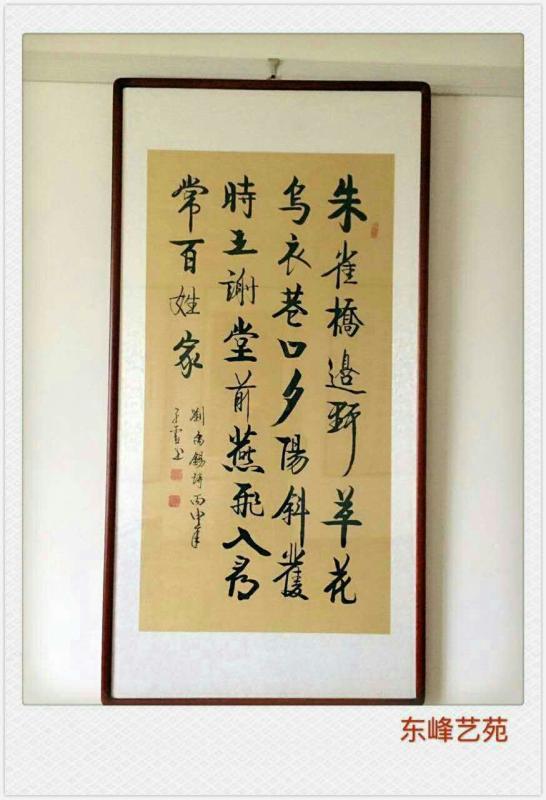 朱雀橋邊野草花
烏衣巷口夕陽斜舊
時王謝堂前燕飛入尋
常百姓家
劉禹錫詩丙申年
东峰艺苑